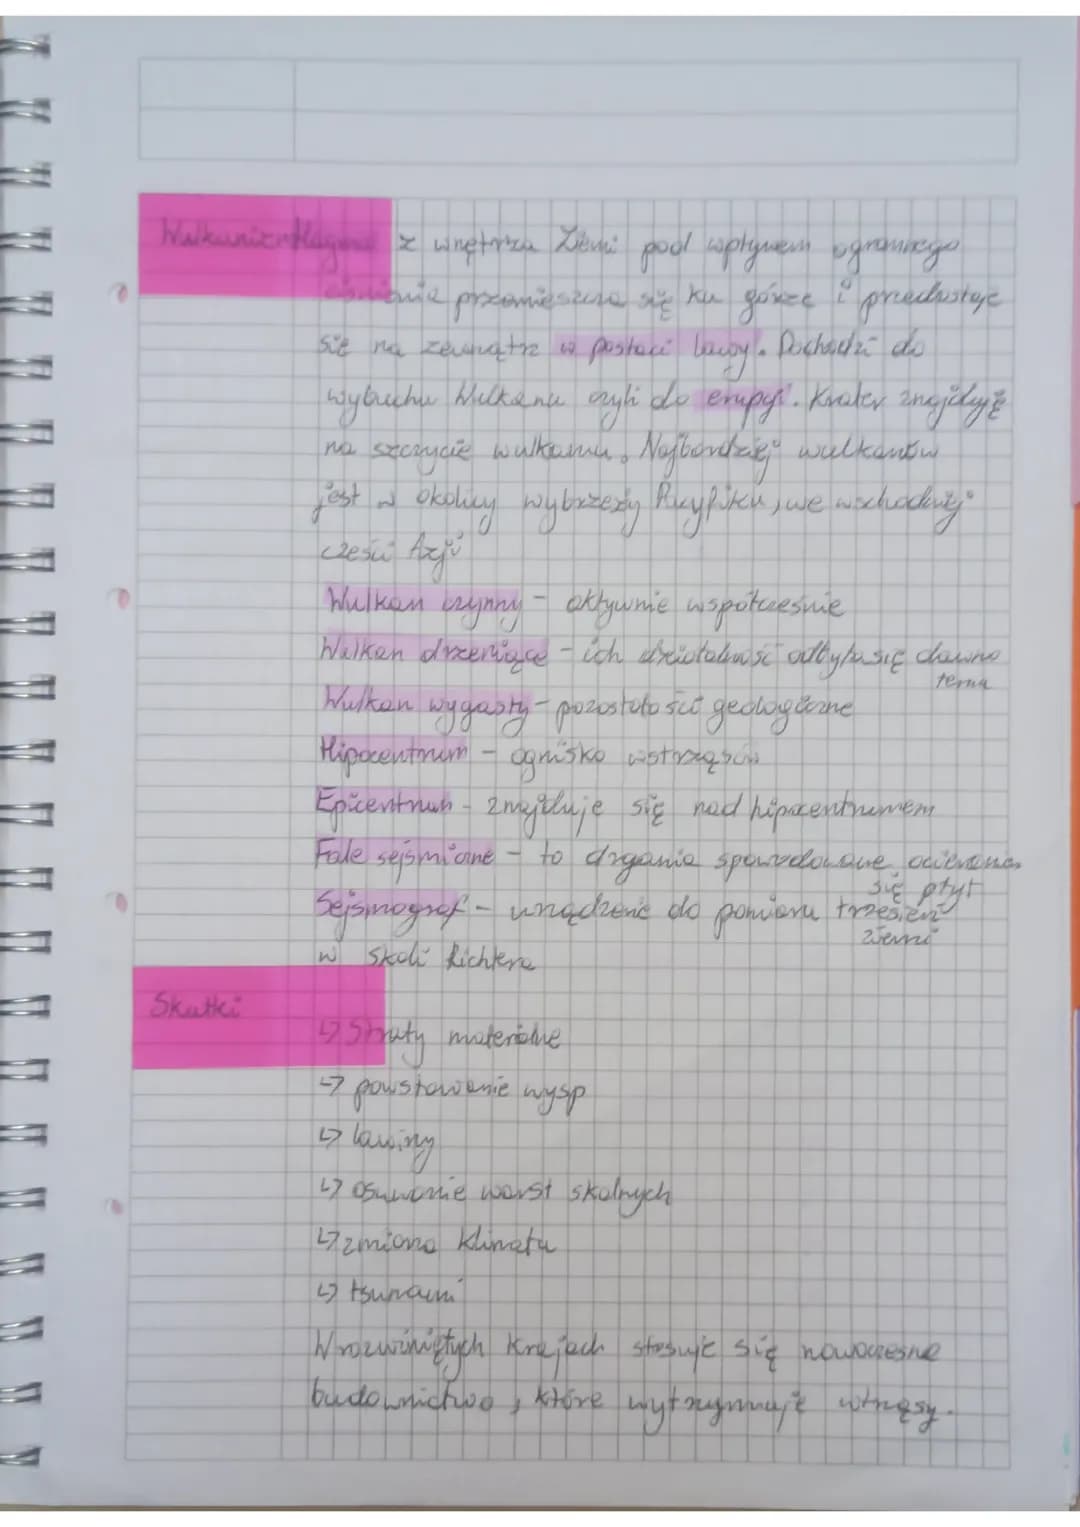 Wulkanizm Magma z wnętrza Ziemi pod wpływem ogromnego
ciśnienia przemieszcza się ku górze i przedostaje
się na zewnątrz w postaci lawy. Dochodzi do
wybuchu Wulkanu czyli do erupcji. Krater znajduje
na szczycie wulkanu. Najbardziej wulkanów
jest w okolicy wybrzeży Pacyfiku, we wschodniej
cześci Azji
Wulkan czynny - aktywnie współcześnie
Wulkan drzemiące - ich działalność odbyła się dawno
temu
Wulkan wygasły - pozostałości geologiczne
Hipocentrum - ognisko wstrząsów
Epicentrum - znajduje się nad hipocentrumem
Fale sejsmiczne - to drgania spowodowane ocieraniem
się płyt
Sejsmograf - urządzenie do pomiaru trzęsień
ziemi
w skali Richtera
Skutki
↳ Straty materialne
↳ powstawanie wysp
↳ lawiny
↳ osuwanie warst skalnych
↳ zmiana klimatu
↳ tsunami
W rozwiniętych krajach stosuje się nowoczesne
budownictwo, które wytrzymuje wtrząsy.